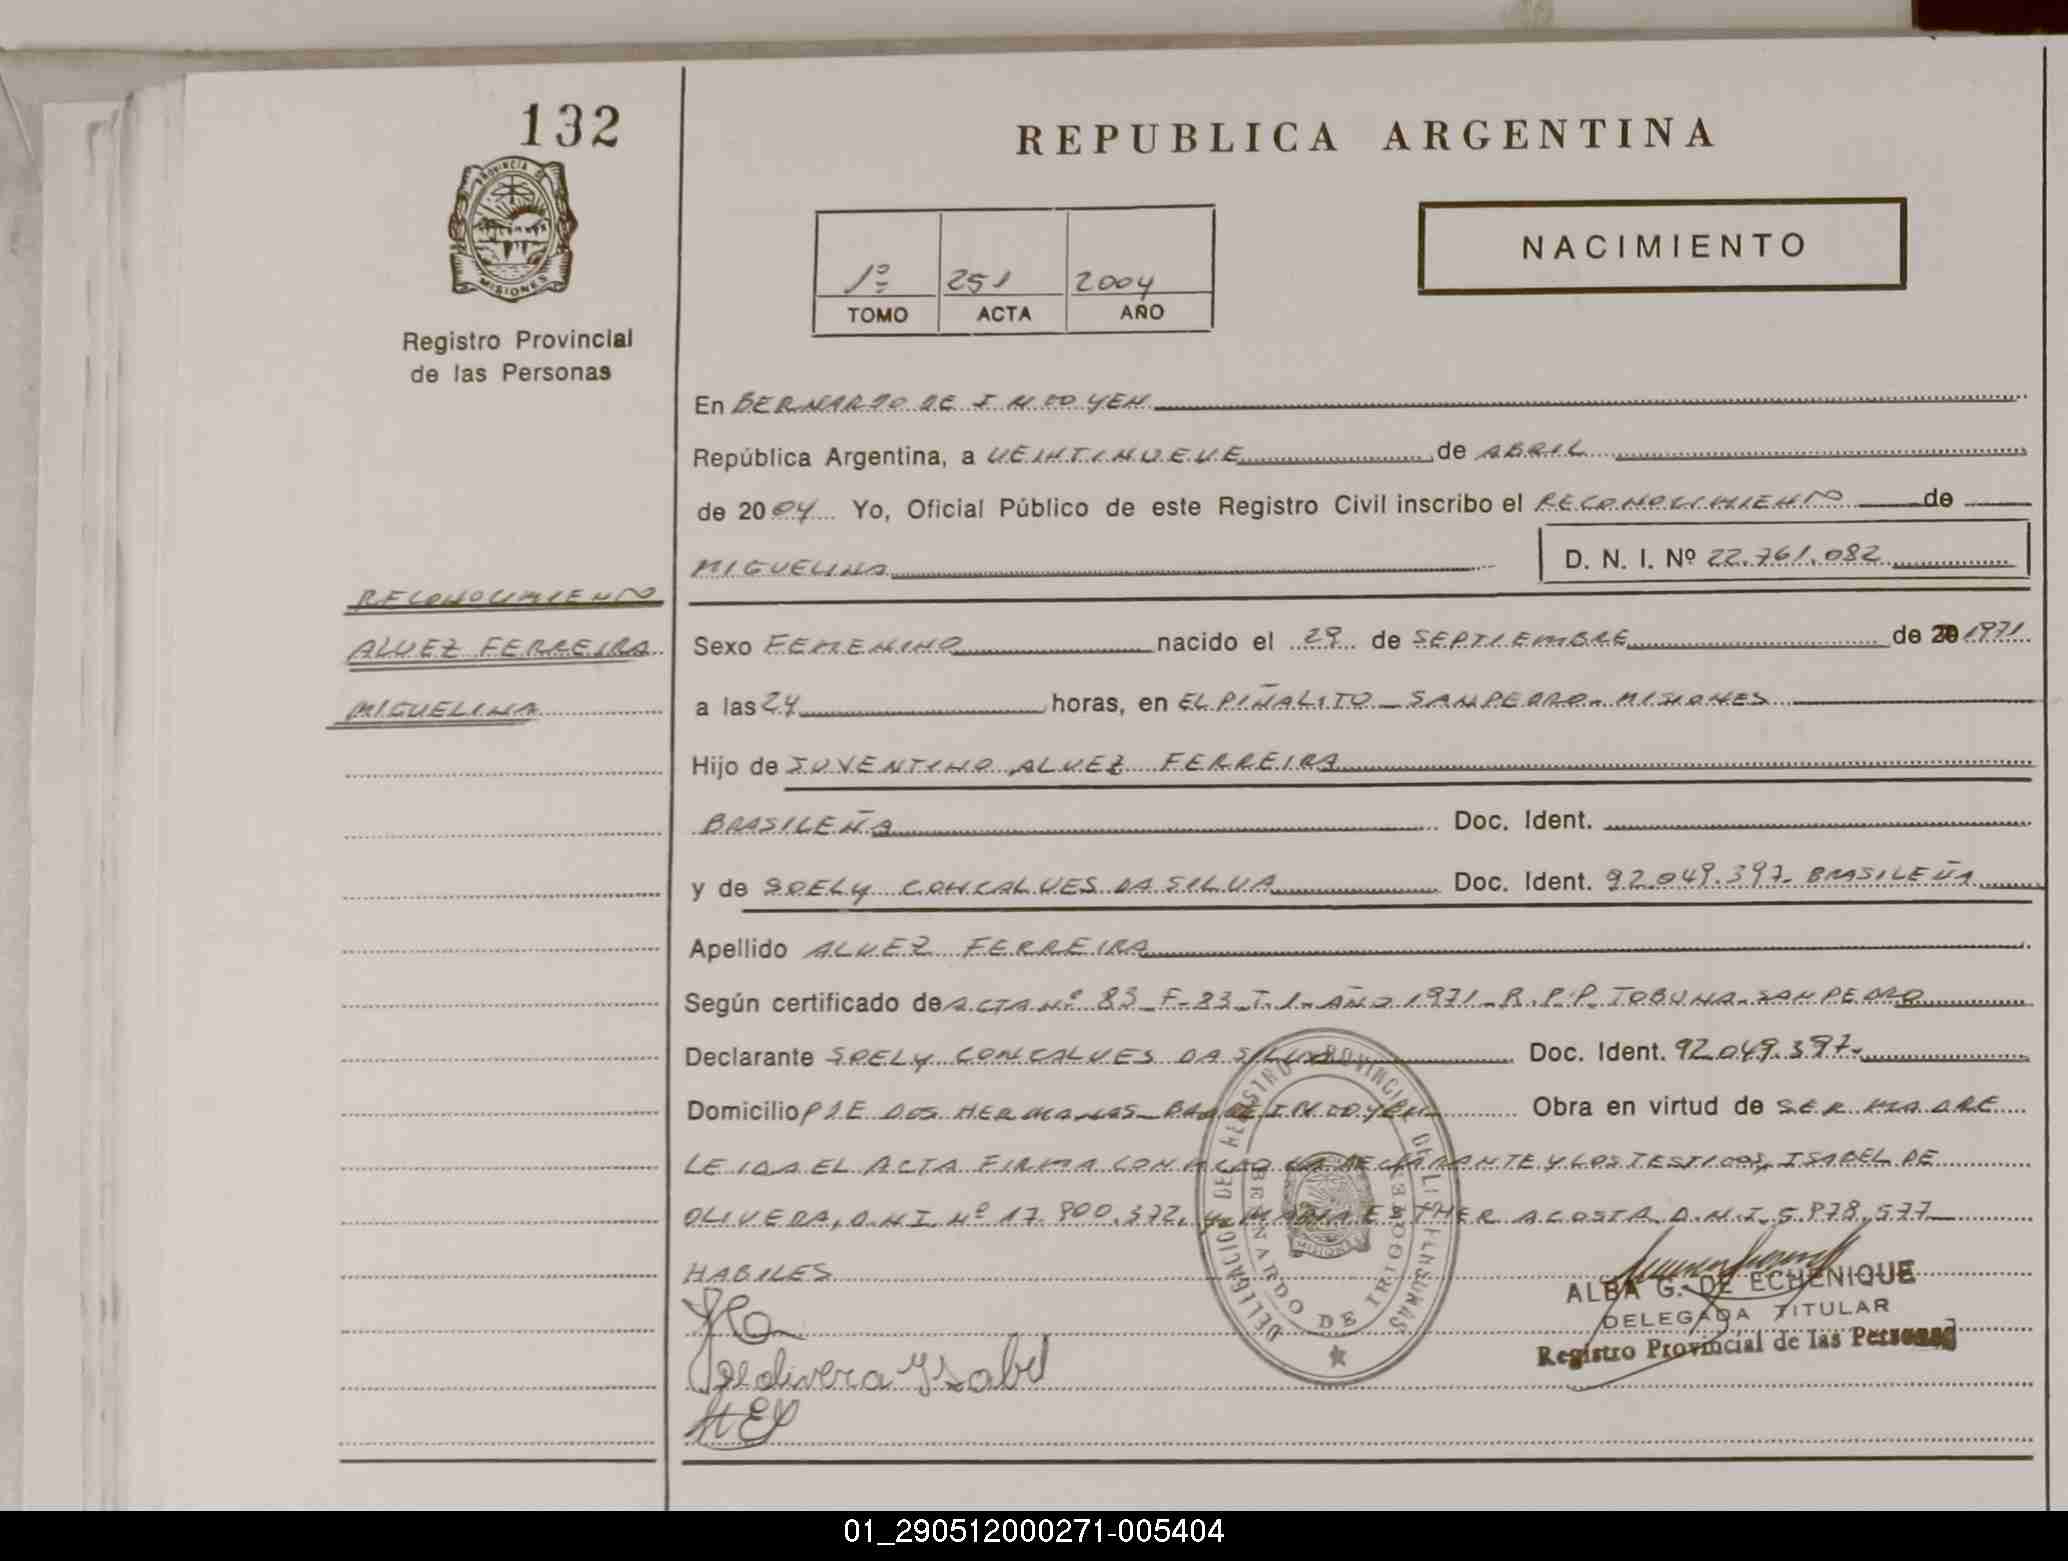 132
PROVINCIA DE
MISIONES
Registro Provincial
de las Personas
REPUBLICA ARGENTINA
NACIMIENTO
1º 251 2004
TOMO ACTA AÑO
En BERNARDO DE IRIGOYEN
República Argentina, a VEINTINUEVE de ABRIL
de 2004 Yo, Oficial Público de este Registro Civil inscribo el RECONOCIMIENTO de
MIGUELINA D. N. I. Nº 22.761.082
RECONOCIMIENTO
ALVEZ FERREIRA
MIGUELINA
Sexo FEMENINO nacido el 29 de SEPTIEMBRE de 1971
a las 24 horas, en EL PIÑALITO - SAN PEDRO - MISIONES
Hijo de JUVENTINO ALVEZ FERREIRA
BRASILEÑA Doc. Ident.
y de SOELY GONCALVES DA SILVA Doc. Ident. 92.049.397- BRASILEÑA
Apellido ALVEZ FERREIRA
Según certificado de ACTA Nº 83 - F-83 - T.1 - AÑO 1971 - R.P.P. TOBUNA - SAN PEDRO
Declarante SOELY GONCALVES DA SILVA Doc. Ident. 92.049.397-
Domicilio PJE DOS HERMANAS - BDO DE IRIGOYEN Obra en virtud de SER MADRE
LEIDA EL ACTA FIRMA CONMIGO LA DECLARANTE Y LOS TESTIGOS, ISABEL DE
OLIVERA, D.N.I. Nº 17.900.372, Y MARIA ESTHER ACOSTA D.N.I. 5.878.577
HABILES
Deolivera Ysabel
DELEGACION DEL REGISTRO PROVINCIAL DE LAS PERSONAS
BERNARDO DE IRIGOYEN
MISIONES
ALBA G. DE ECHENIQUE
DELEGADA TITULAR
Registro Provincial de las Personas
01_290512000271-005404